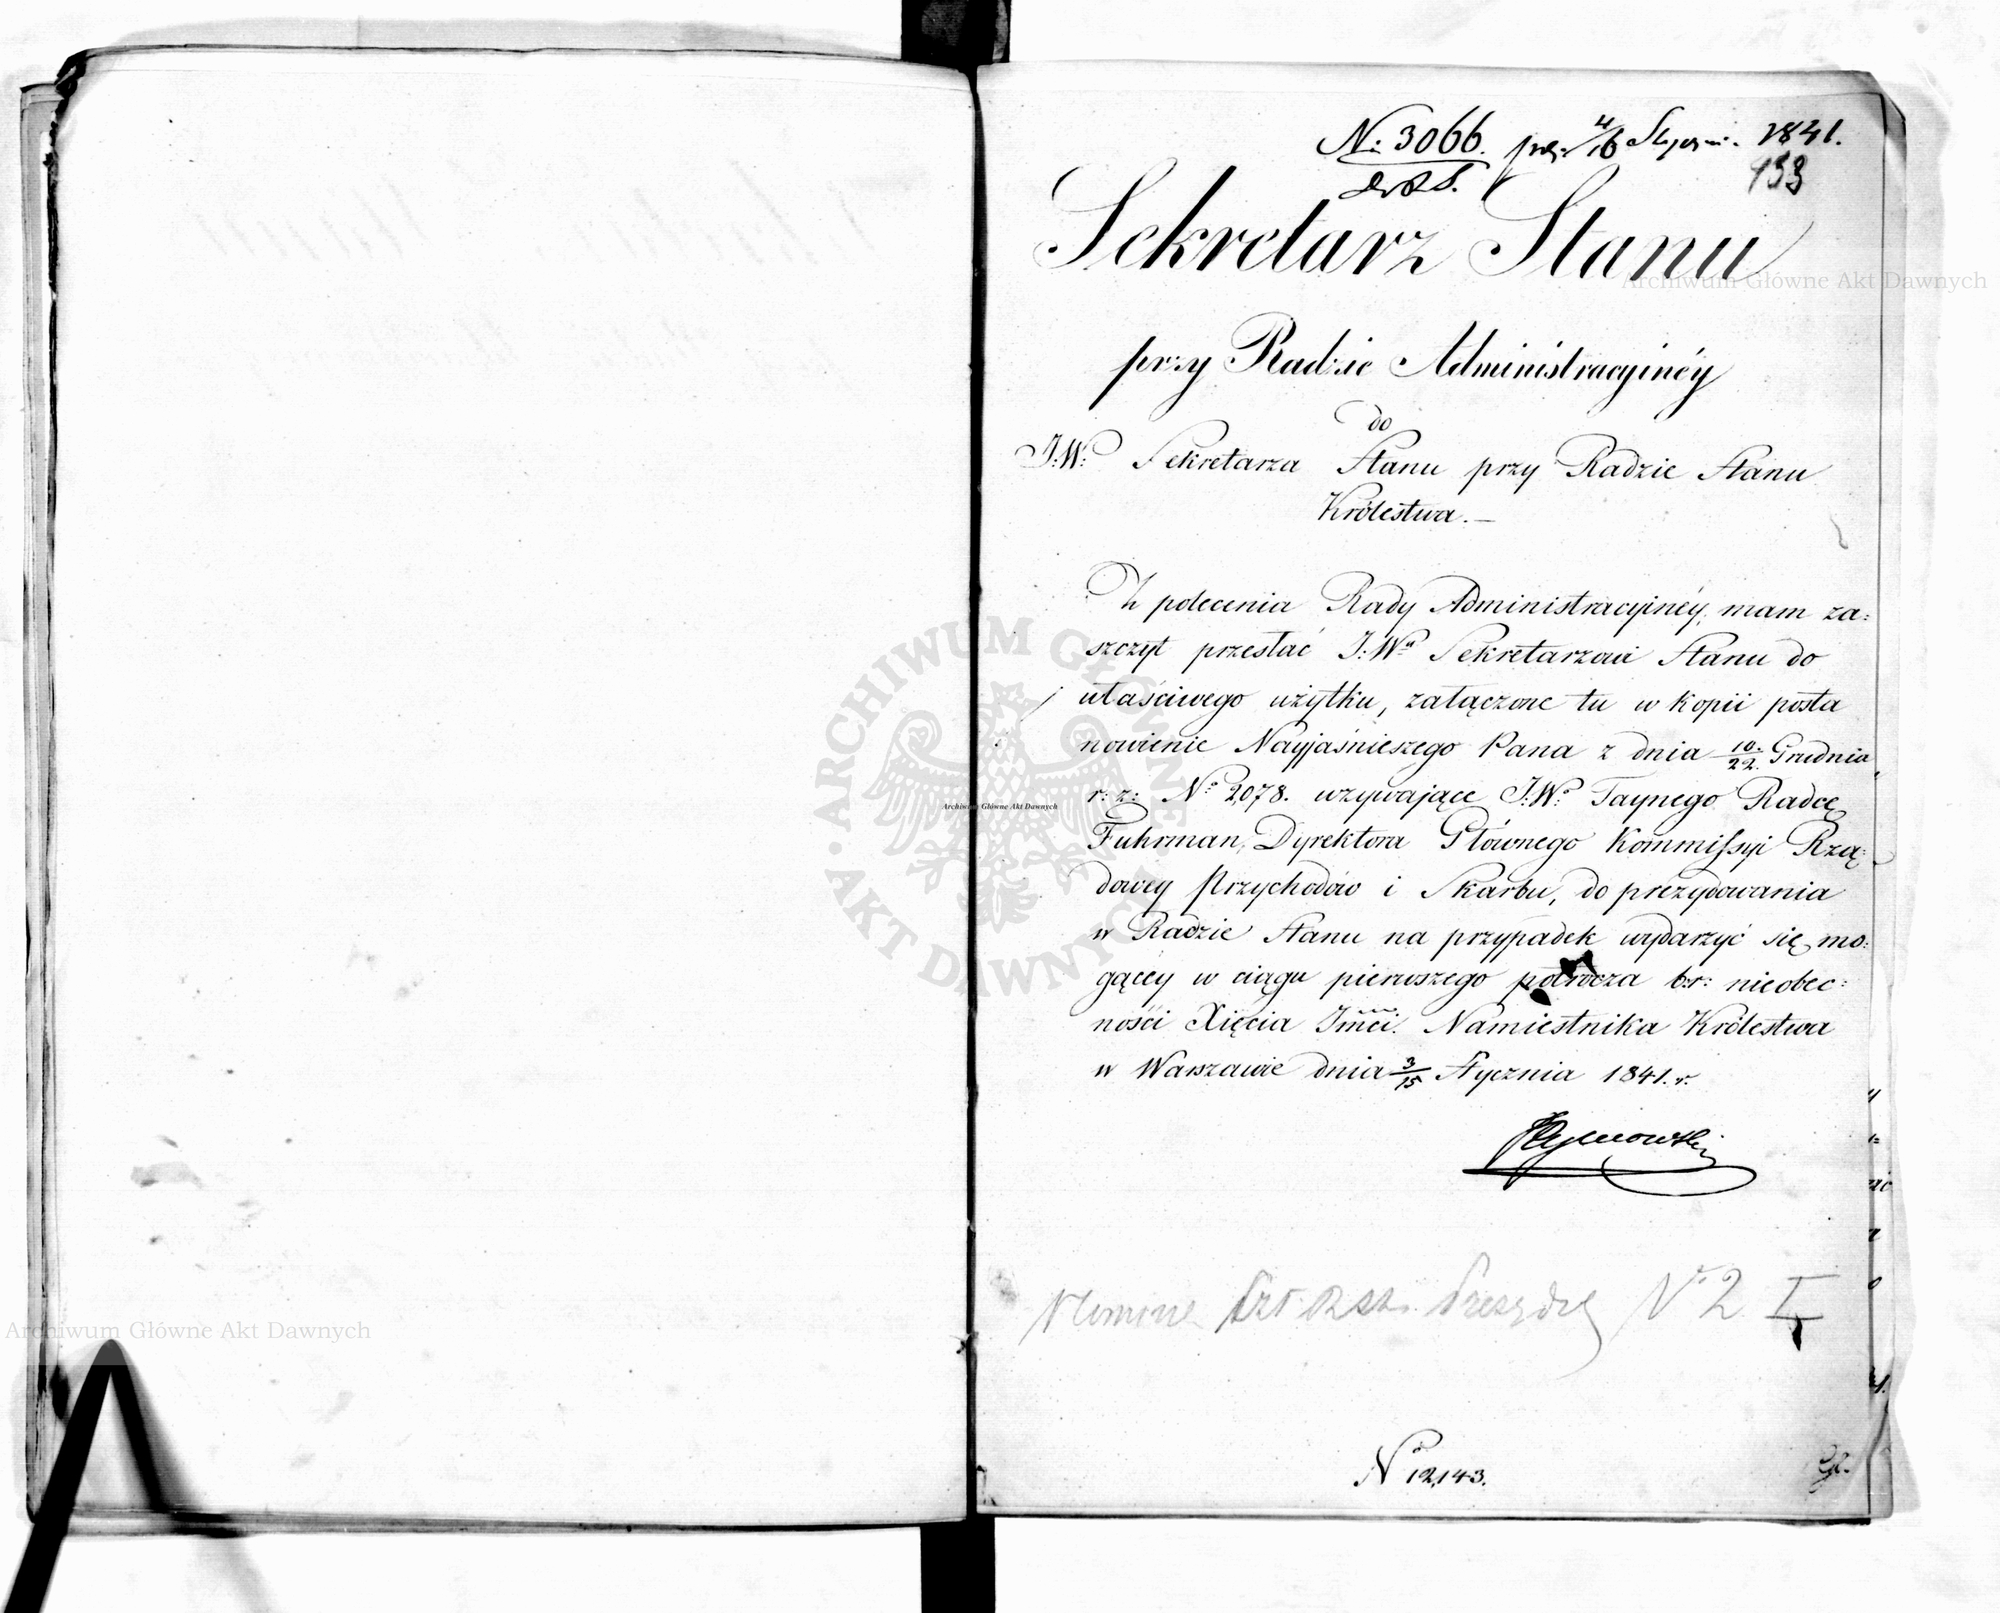 No 3066. 4/16 Stycz. 1841.
933
Sekretarz Stanu
przy Radzie Administracyinéy
do
J:W: Sekretarza Stanu przy Radzie Stanu
Królestwa.—
Z polecenia Rady Administracyinéy, mam za=
szczyt przesłać J:Wu Sekretarzowi Stanu do
właściwego użytku, załączone tu w kopii posta
nowienie Nayjaśnieszego Pana z dnia 10/22. Grudnia
r: z: No 2,078. wzywające J:Wo Taynego Radcę
Fuhrman, Dyrektora Głównego Kommissyi Rzą=
dowey Przychodów i Skarbu, do prezydowania
w Radzie Stanu na przypadek wydarzyć się mo=
gącéy w ciągu pierwszego półrocza b:r: nieobec=
ności Xięcia Jmci. Namiestnika Królestwa
w Warszawie dnia 3/15 Stycznia 1841. r.
No 2 I
No 12,143.
Archiwum Główne Akt Dawnych
Archiwum Główne Akt Dawnych
Archiwum Główne Akt Dawnych
ARCHIWUM GŁÓWNE
AKT DAWNYCH